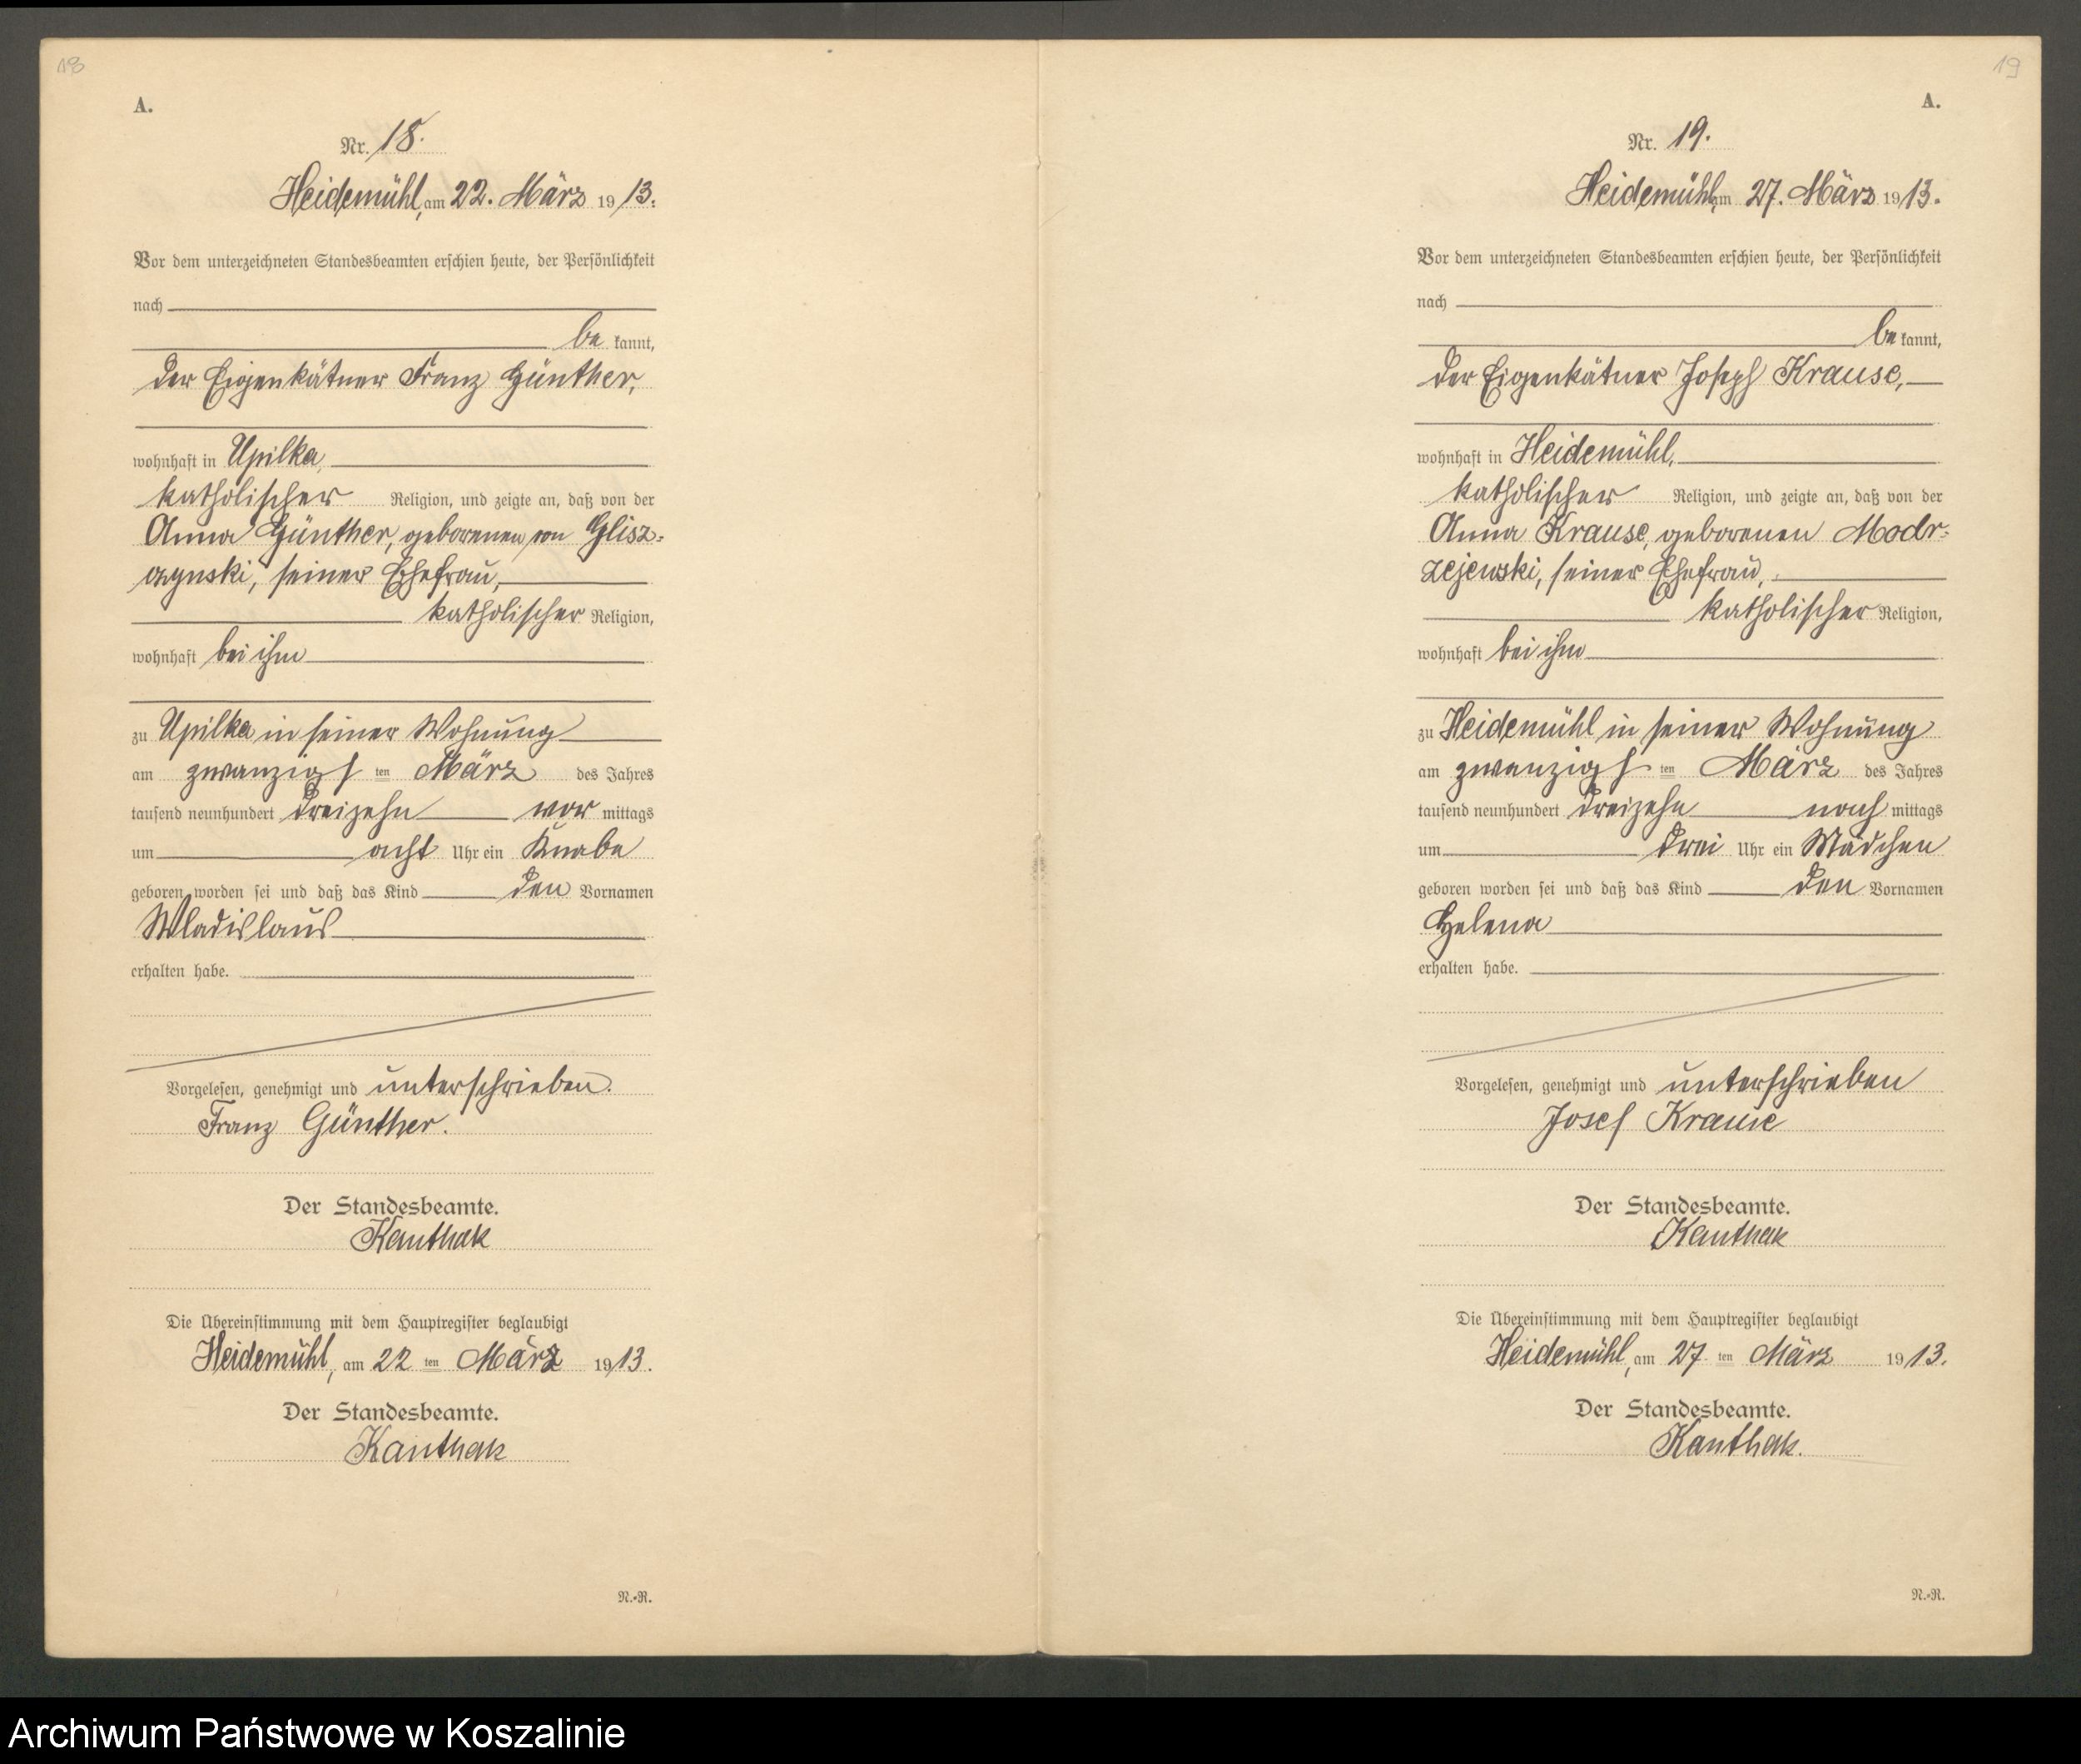 18
A.
Nr. 18.
Heidemühl, am 22. März 1913.
Vor dem unterzeichneten Standesbeamten erschien heute, der Persönlichkeit
nach
be kannt,
der Eigenkätner Franz Günther,
wohnhaft in Upilka,
katholischer Religion, und zeigte an, daß von der
Anna Günther, geborenen von Glisz-
czynski, seiner Ehefrau,
katholischer Religion,
wohnhaft bei ihm
zu Upilka in seiner Wohnung
am zwanzigs ten März des Jahres
tausend neunhundert dreizehn vor mittags
um acht Uhr ein Knabe
geboren worden sei und daß das Kind den Vornamen
Wladislaus
erhalten habe.
Vorgelesen, genehmigt und unterschrieben.
Franz Günther.
Der Standesbeamte.
Kanthak
Die Übereinstimmung mit dem Hauptregister beglaubigt
Heidemühl, am 22 ten März 1913.
Der Standesbeamte.
Kanthak
N.-R.
19
A.
Nr. 19.
Heidemühl, am 27. März 1913.
Vor dem unterzeichneten Standesbeamten erschien heute, der Persönlichkeit
nach
be kannt,
der Eigenkätner Joseph Krause,
wohnhaft in Heidemühl,
katholischer Religion, und zeigte an, daß von der
Anna Krause, geborenen Modr-
zejewski, seiner Ehefrau,
katholischer Religion,
wohnhaft bei ihm
zu Heidemühl in seiner Wohnung
am zwanzigs ten März des Jahres
tausend neunhundert dreizehn nach mittags
um drei Uhr ein Mädchen
geboren worden sei und daß das Kind den Vornamen
Helena
erhalten habe.
Vorgelesen, genehmigt und unterschrieben
Josef Krause
Der Standesbeamte.
Kanthak
Die Übereinstimmung mit dem Hauptregister beglaubigt
Heidemühl, am 27 ten März 1913.
Der Standesbeamte.
Kanthak.
N.-R.
Archiwum Państwowe w Koszalinie